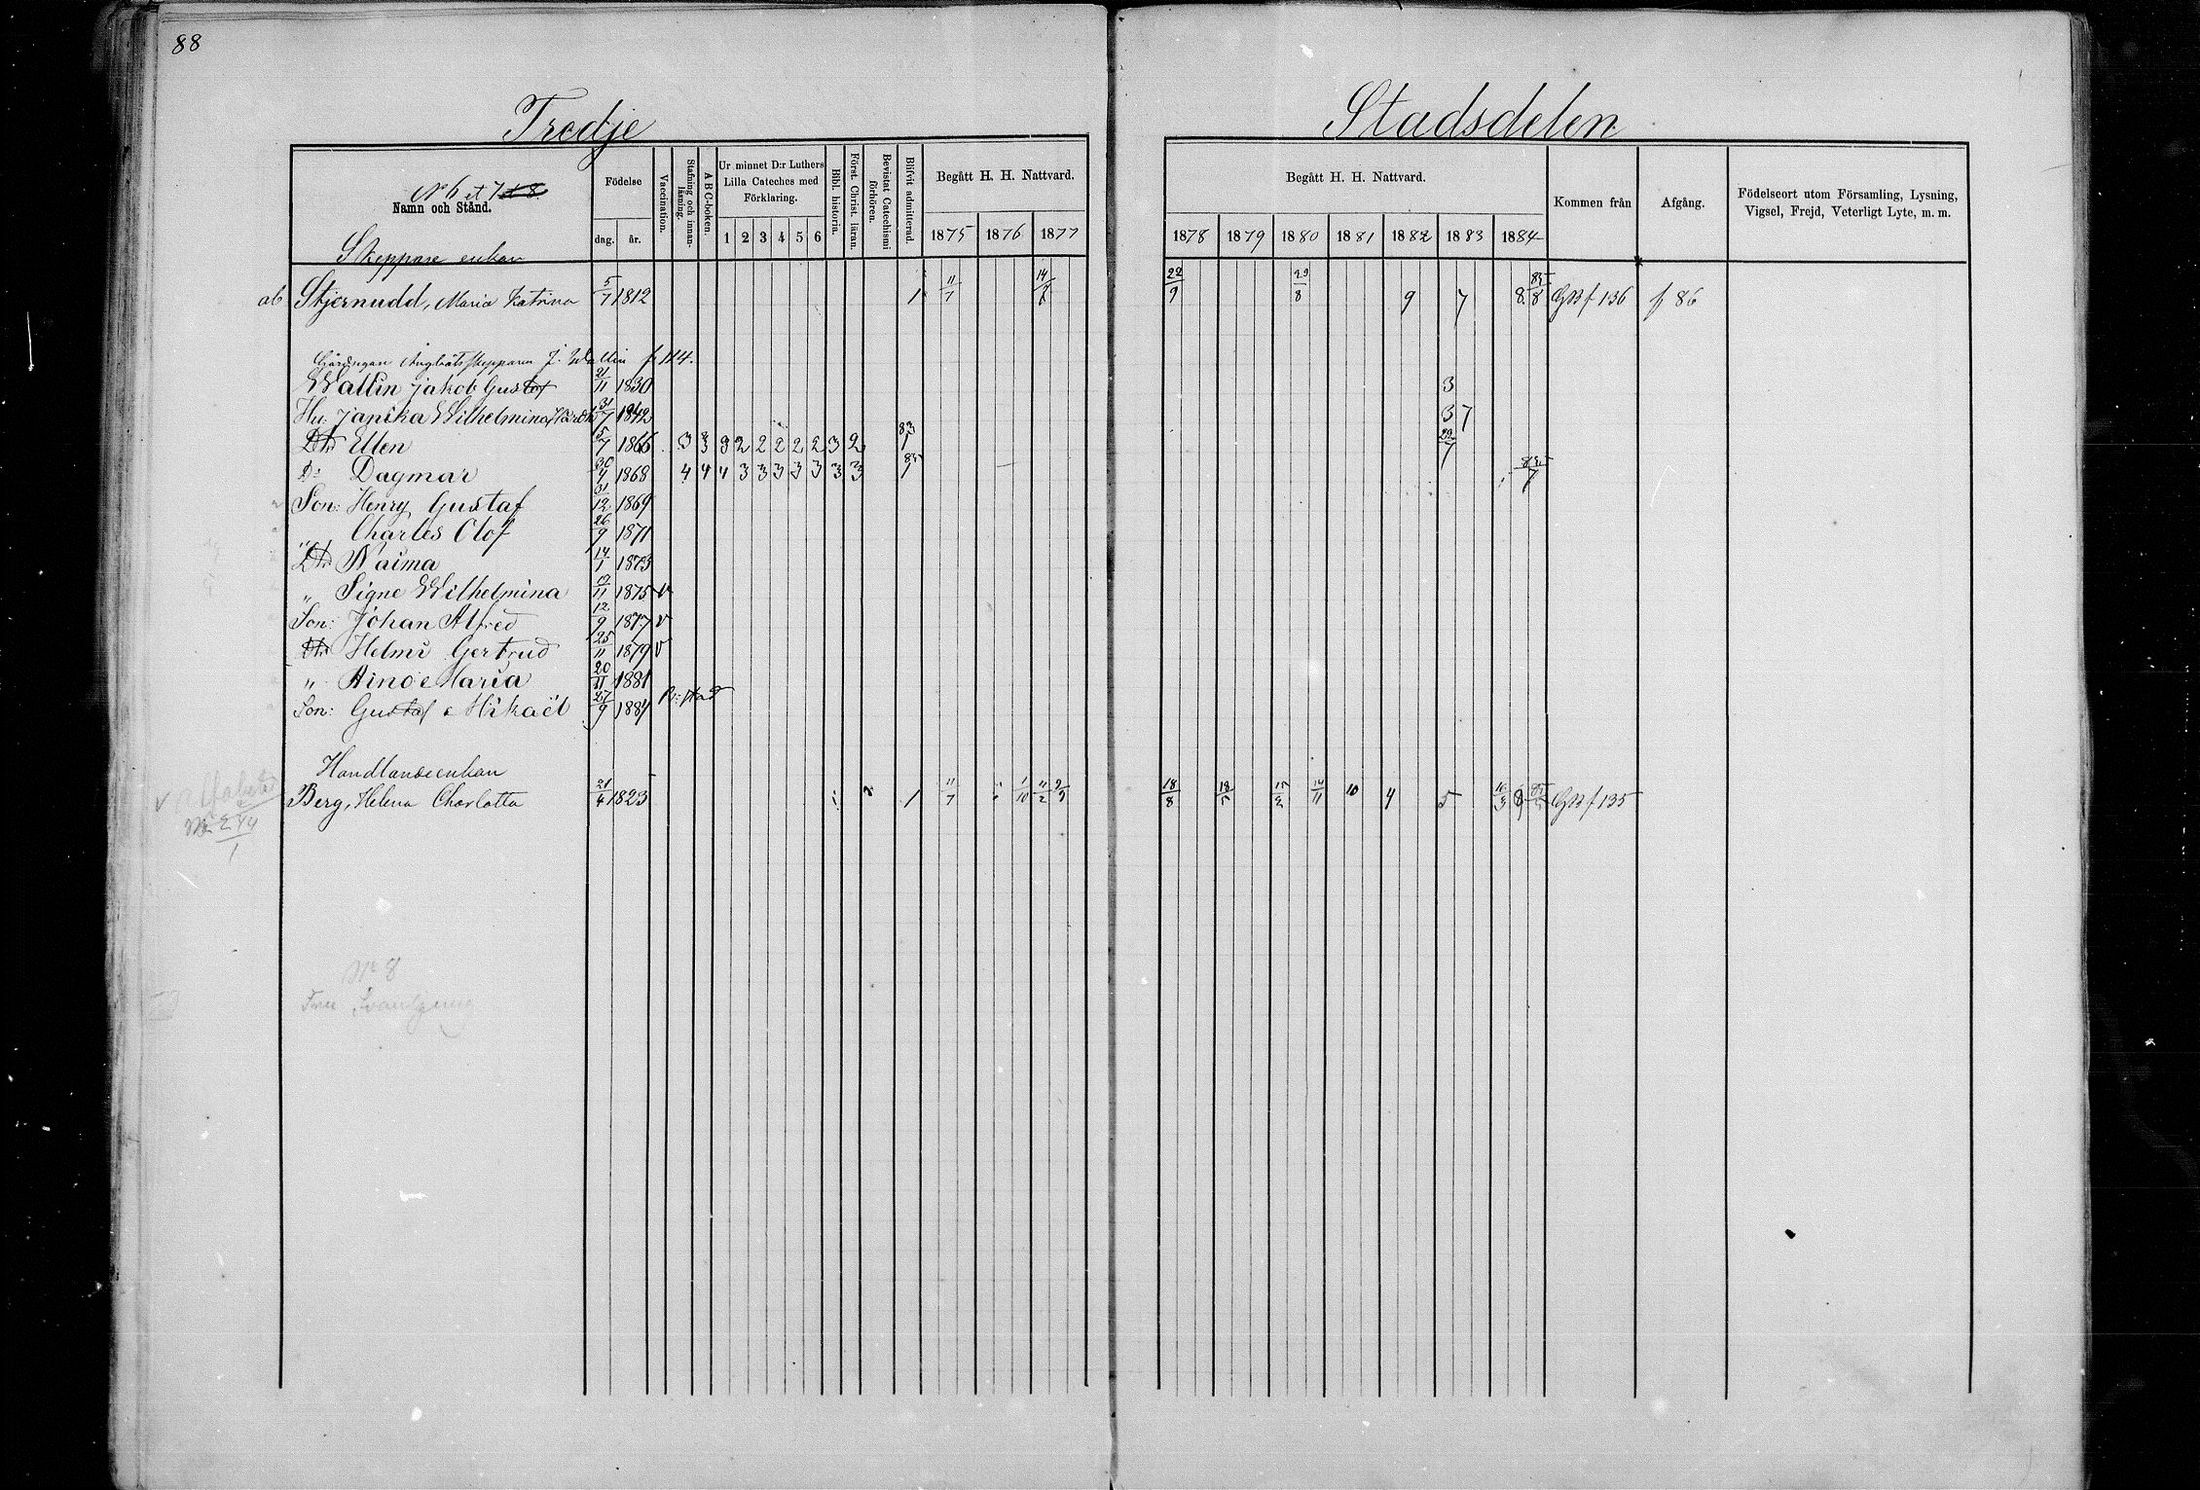 88
Tredje Stadsdelen
No 6 et 7 et 8
Namn och Stånd.
Födelse
dag. år.
Vaccination.
Stafning och innanläsning.
A B C-boken.
Ur minnet D:r Luthers Lilla Cateches med Förklaring.
1 2 3 4 5 6
Bibl. historia.
Först. Christ. läran.
Bevistat Catechismi förhören.
Blifvit admitterad.
Begått H. H. Nattvard.
1875 1876 1877
Begått H. H. Nattvard.
1878 1879 1880 1881 1882 1883 1884
Kommen från
Afgång.
Födelseort utom Församling, Lysning, Vigsel, Frejd, Veterligt Lyte, m. m.
Skeppare enkan
ab Stjernudd, Maria Katrina 5/7 1812 1 11/7 14/7 22/9 29/8 9 7 8 85/8 GB f 136 f 86
J. Wallin f 114.
Wallin Jakob Gustaf 21/11 1830 3
Hu: Janika Wilhelmina 31/7 1842 3 7
Dtr Ellen 5/7 1866 3 3 3 2 2 2 2 2 3 2 83/1 22/7
D: Dagmar 30/4 1868 4 4 4 3 3 3 3 3 3 3 85/1 85/7
Son: Henry Gustaf 31/12 1869
" Charles Olof 26/9 1871
Dtr Naima 14/1 1873
" Signe Wilhelmina 19/11 1875 v
Son: Johan Alfred 12/9 1877 v
Dtr Helmi Gertrud 25/11 1879 v
" Aino Maria 20/11 1881
Son: Gustaf Mikaël 27/9 1884
Handlandeenkan
Berg, Helena Charlotta 21/4 1823 1 11/7 1/10 11/2 9/9 18/8 18/5 15/2 14/11 10 4 5 GB f 135
No 8
Fru